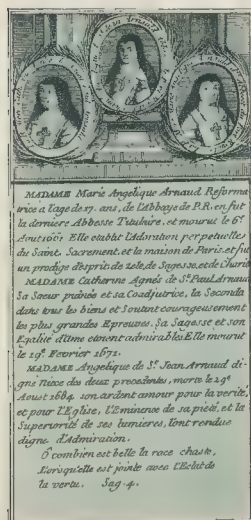 MADAME Marie Angelique Arnaud Reforma
trice a l'age de 17. ans, de l'Abbaye de P.R. en fut
la derniere Abbesse Titulaire, et mourut le 6e
Aout 1661 Elle etablit l'Adoration perpetuelles
du Saint. Sacrement, et la maison de Paris, et fut
un prodige d'esprit, de zele, de Sagesse, et de Charité
MADAME Catherine Agnés de St. Paul Arnaud
Sa Sœur puinée et sa Coadjutrice, la Seconda
dans tous les biens et Soutint courageusement
les plus grandes Epreuves. Sa Sagesse et son
Egalité d'ame etoient admirables Elle mourut
le 19e Fevrier 1671.
MADAME Angelique de St. Jean Arnaud di-
gne Niece des deux precedentes, morte le 29e
Aoust 1684 son ardent amour pour la verité,
et pour l'Eglise, l'Eminence de sa pieté, et la
Superiorité de ses lumieres, l'ont rendue
digne d'Admiration.
O combien est belle la race chaste,
Lorsqu'elle est jointe avec l'Eclat de
la vertu. Sag. 4.